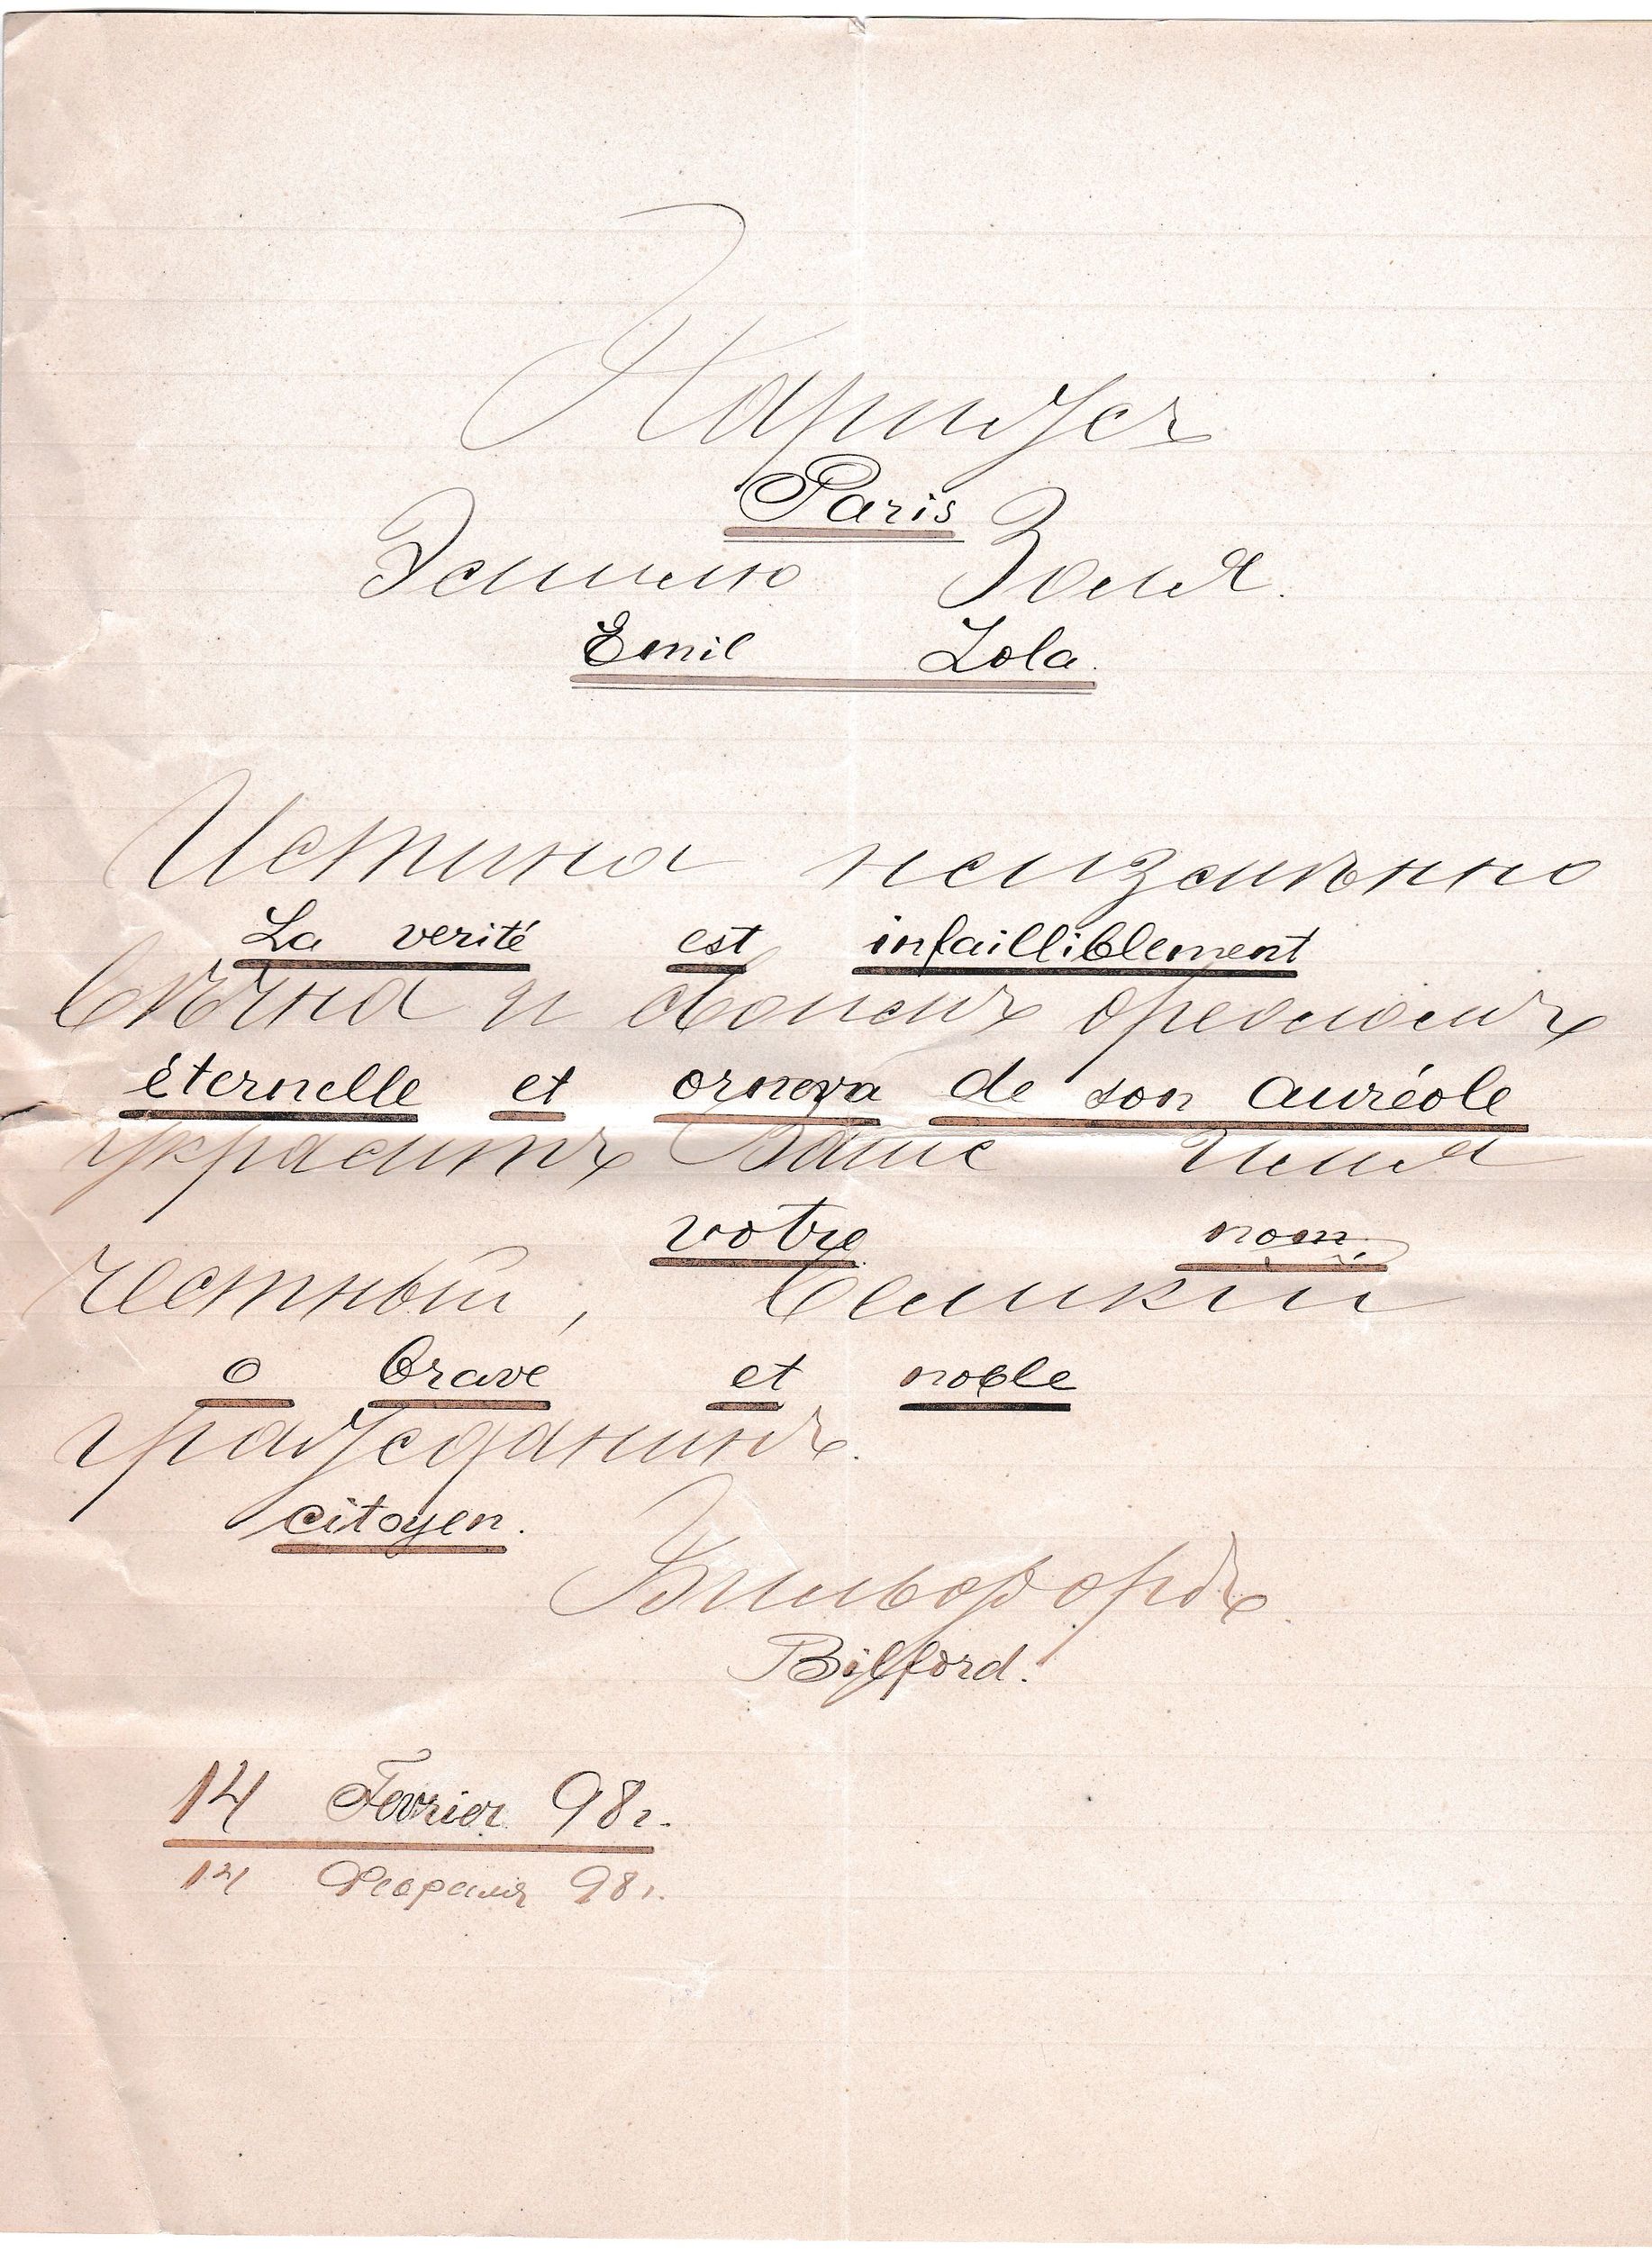 Парижъ
Paris
Землю Золя.
Emil Zola.
Истина неизмѣнно
La verité est infailliblement
вѣчна и своимъ ореоломъ
éternelle et ornera de son auréole
украситъ Ваше имя
votre nom.
честный, великій
o brave et noble
гражданинъ.
citoyen.
Бильфордъ.
Bilford.
14 Fevrier 98 г.
14 Февраля 98 г.